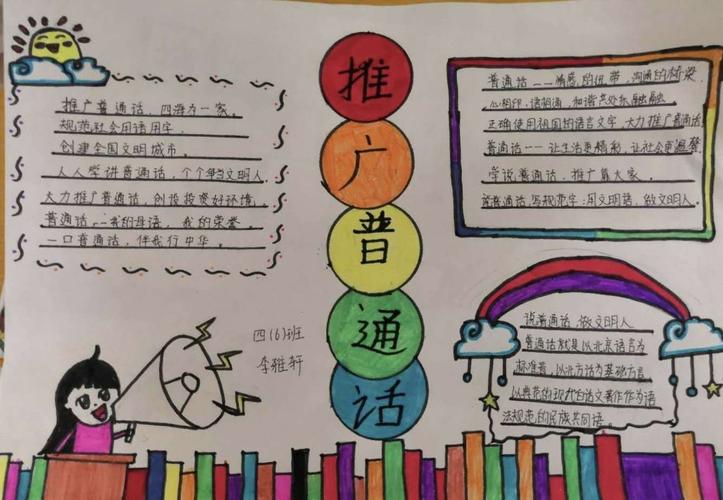 推广普通话，四海为一家。
规范社会用语用字，
创建全国文明城市。
人人学讲普通话，个个争当文明人
大力推广普通话，创设投资好环境。
普通话——我的母语，我的荣誉。
一口普通话，伴我行中华。
四(6)班
李雅轩
推
广
普
通
话
普通话——情感的纽带，沟通的桥梁
心相印，语相通，和谐共处乐融融
正确使用祖国的语言文字，大力推广普通话
普通话——让生活更精彩，让社会更温馨
学说普通话，推广靠大家。
普通话，写规范字：用文明语，做文明人。
说普通话，做文明人
普通话就是以北京语言为
标准音，以北方话为基础方言
以典范的现代白话文著作作为语
法规范的民族共同语。